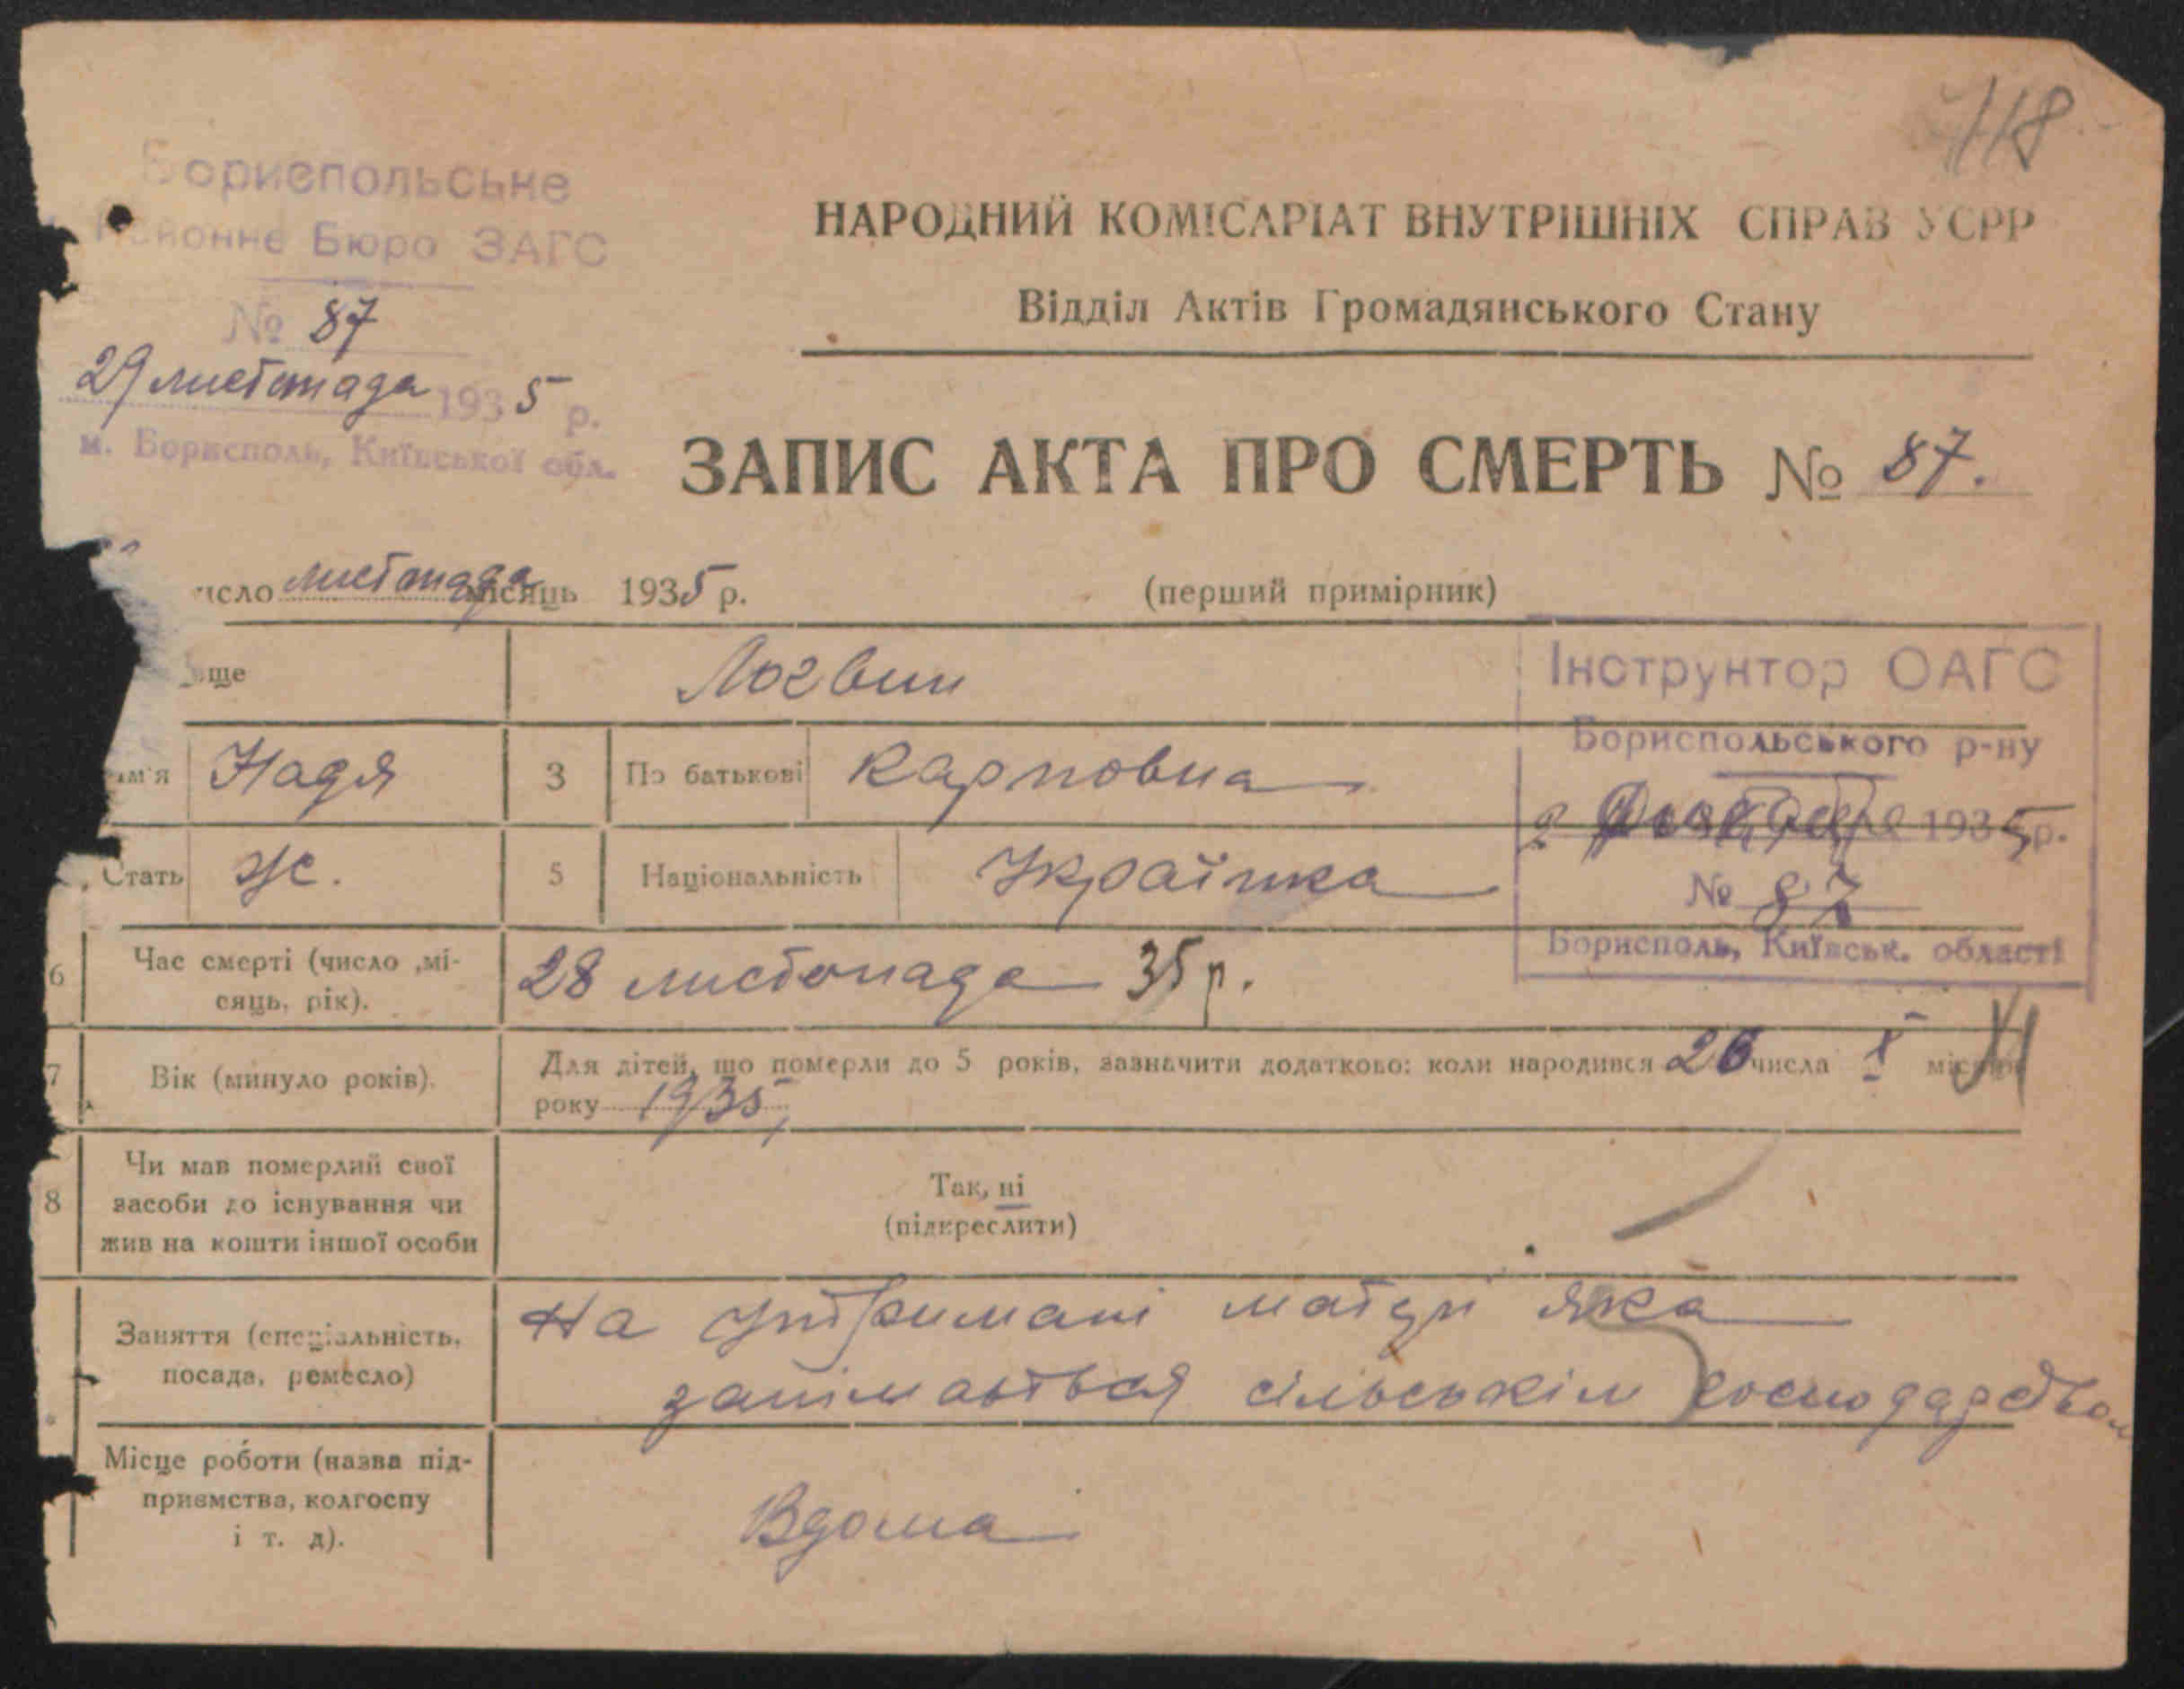 118
Бориспольське
Районне Бюро ЗАГС
№ 87
29 листопада 1935 р.
м. Борисполь, Київської обл.
НАРОДНИЙ КОМІСАРІАТ ВНУТРІШНІХ СПРАВ УСРР
Відділ Актів Громадянського Стану
ЗАПИС АКТА ПРО СМЕРТЬ № 87.
исло листопада місяць 1935 р.
(перший примірник)
вще Логвин
Інструктор ОАГС
Бориспольського р-ну
2 1935 р.
№ 87
Борисполь, Київськ. області
ім'я Надя 3 По батькові Карповна
Стать Ж. 5 Національність Українка
6 Час смерті (число ,мі-
сяць, рік).
28 листопада 35 р.
7 Вік (минуло років).
Для дітей, що померли до 5 років, зазначити додатково: коли народився 26 числа X місяця
року 1935,
XI
8 Чи мав померлий свої
засоби до існування чи
жив на кошти іншої особи
Так, ні
(підкреслити)
Заняття (спеціальність,
посада, ремесло)
На утримані матері яка
занімається сільськім господарством
Місце роботи (назва під-
приємства, колгоспу
і т. д).
Вдома